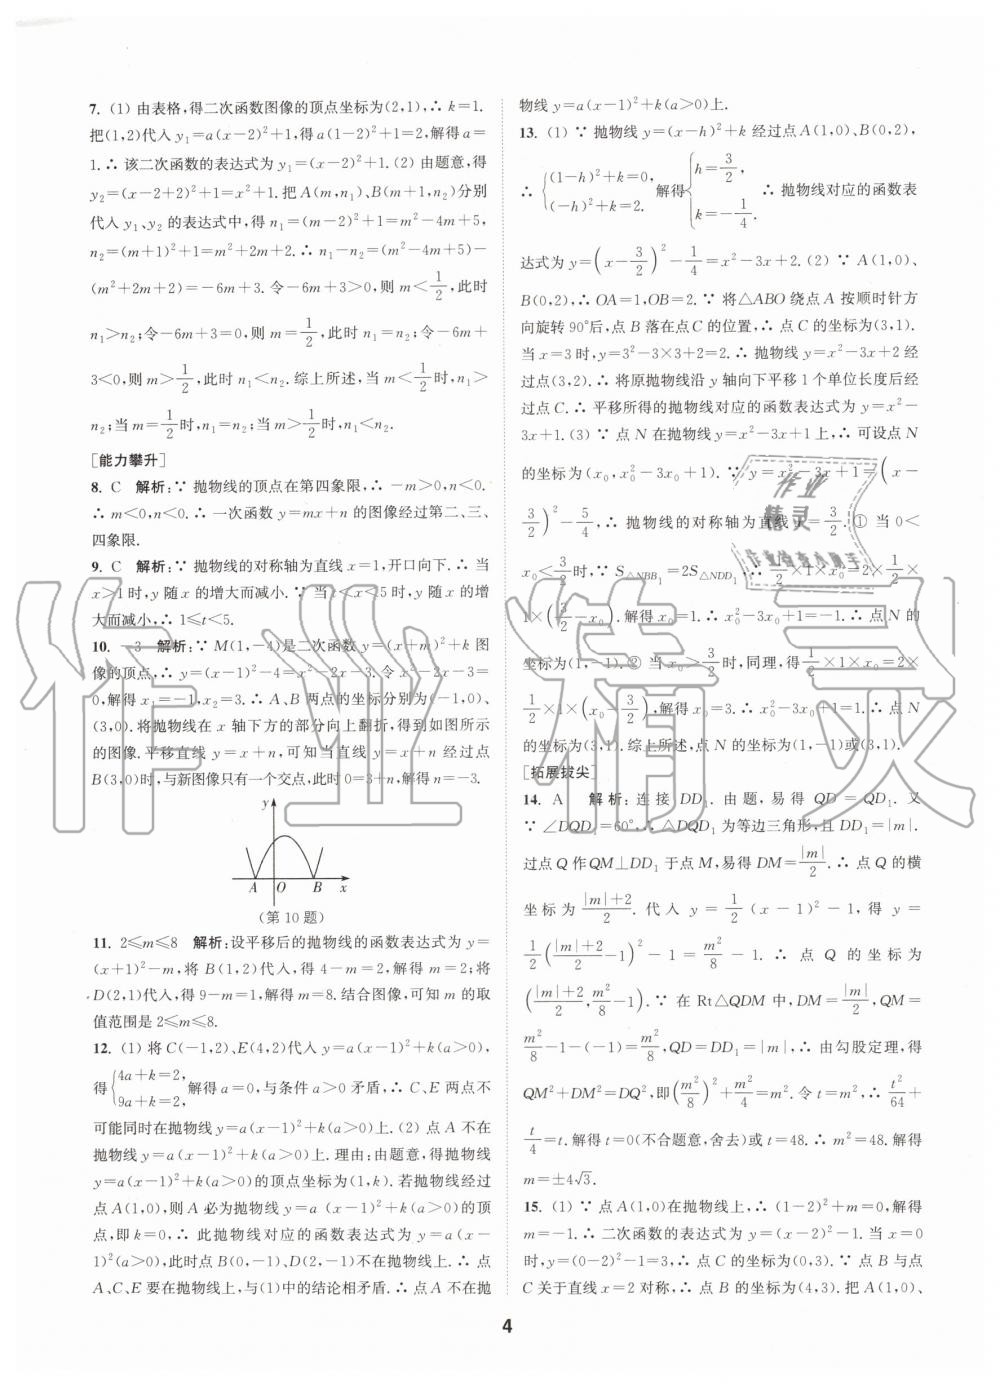 7. (1) 由表格,得二次函数图像的顶点坐标为(2,1),∴ k=1.
把(1,2)代入 y₁=a(x-2)²+1,得a(1-2)²+1=2,解得a=
1.∴ 该二次函数的表达式为 y₁=(x-2)²+1.(2) 由题意,得
y₂=(x-2+2)²+1=x²+1.把 A(m,n₁)、B(m+1,n₂)分别
代入 y₁、y₂ 的表达式中,得 n₁=(m-2)²+1=m²-4m+5,
n₂=(m+1)²+1=m²+2m+2.∴ n₁-n₂=(m²-4m+5)-
(m²+2m+2)=-6m+3.令-6m+3>0,则 m<1/2,此时
n₁>n₂;令-6m+3=0,则 m=1/2,此时 n₁=n₂;令-6m+
3<0,则 m>1/2,此时 n₁<n₂.综上所述,当 m<1/2时,n₁>
n₂;当 m=1/2时,n₁=n₂;当 m>1/2时,n₁<n₂.
[能力攀升]
8. C 解析:∵ 抛物线的顶点在第四象限,∴ -m>0,n<0.
∴ m<0,n<0.∴ 一次函数 y=mx+n 的图像经过第二、三、
四象限.
9. C 解析:∵ 抛物线的对称轴为直线 x=1,开口向下,∴ 当
x>1时,y 随x 的增大而减小.∵ 当t<x<5时,y 随 x 的增
大而减小,∴ 1≤t<5.
10. -3 解析:∵ M(1,-4)是二次函数 y=(x+m)²+k 图
像的顶点,∴ y=(x-1)²-4=x²-2x-3.令x²-2x-3=
0,解得 x₁=-1,x₂=3.∴ A、B 两点的坐标分别为(-1,0)、
(3,0).将抛物线在 x 轴下方的部分向上翻折,得到如图所示
的图像.平移直线 y=x+n,可知当直线 y=x+n 经过点
B(3,0)时,与新图像只有一个交点,此时0=3+n,解得n=-3.
y
A O B x
(第10题)
11. 2≤m≤8 解析:设平移后的抛物线的函数表达式为 y=
(x+1)²-m,将 B(1,2)代入,得 4-m=2,解得 m=2;将
D(2,1)代入,得 9-m=1,解得 m=8.结合图像,可知 m 的取
值范围是 2≤m≤8.
12. (1) 将C(-1,2)、E(4,2)代入 y=a(x-1)²+k(a>0),
得{4a+k=2, 9a+k=2,解得 a=0,与条件 a>0 矛盾,∴ C、E 两点不
可能同时在抛物线 y=a(x-1)²+k(a>0)上.(2) 点 A 不在
抛物线 y=a(x-1)²+k(a>0)上.理由:由题意,得抛物线
y=a(x-1)²+k(a>0)的顶点坐标为(1,k).若抛物线经过
点 A(1,0),则 A 必为抛物线 y=a (x-1)²+k(a>0)的顶
点,即 k=0,∴ 此抛物线对应的函数表达式为 y=a(x-
1)²(a>0),此时点 B(0,-1)、D(2,-1)不在抛物线上.∴ 点
A、C、E 要在抛物线上,与(1)中的结论相矛盾.∴ 点 A 不在抛
物线 y=a(x-1)²+k(a>0)上.
13. (1) ∵ 抛物线 y=(x-h)²+k 经过点 A(1,0)、B(0,2),
∴ {(1-h)²+k=0, (-h)²+k=2. 解得{h=3/2, k=-1/4. ∴ 抛物线对应的函数表
达式为 y=(x-3/2)²-1/4=x²-3x+2.(2) ∵ A(1,0)、
B(0,2),∴ OA=1,OB=2.∵ 将△ABO 绕点 A 按顺时针方
向旋转 90°后,点 B 落在点C 的位置,∴ 点 C 的坐标为(3,1).
当 x=3时,y=3²-3×3+2=2.∴ 抛物线 y=x²-3x+2 经
过点(3,2).∴ 将原抛物线沿 y 轴向下平移 1 个单位长度后经
过点 C.∴ 平移所得的抛物线对应的函数表达式为 y=x²-
3x+1.(3) ∵ 点 N 在抛物线 y=x²-3x+1 上,∴ 可设点 N
的坐标为(x₀,x₀²-3x₀+1).∵ y=x²-3x+1=(x-
3/2)²-5/4,∴ 抛物线的对称轴为直线 x=3/2.① 当 0<
x₀<3/2时,∵ S△NBB₁=2S△NDD₁,∴ 1/2×1×x₀=2×1/2×
1×(3/2-x₀).解得 x₀=1.∴ x₀²-3x₀+1=-1.∴ 点 N 的
坐标为(1,-1).② 当 x₀>3/2时,同理,得 1/2×1×x₀=2×
1/2×1×(x₀-3/2),解得 x₀=3.∴ x₀²-3x₀+1=1.∴ 点 N
的坐标为(3,1).综上所述,点 N 的坐标为(1,-1)或(3,1).
[拓展拔尖]
14. A 解析:连接 DD₁.由题,易得 QD=QD₁.又
∵ ∠DQD₁=60°,∴ △DQD₁ 为等边三角形,且 DD₁=|m|.
过点 Q 作 QM⊥DD₁ 于点 M,易得 DM=|m|/2.∴ 点 Q 的横
坐标为 (|m|+2)/2.代入 y=1/2(x-1)²-1,得 y=
1/2((|m|+2)/2-1)²-1=m²/8-1.∴ 点 Q 的坐标为
((|m|+2)/2,m²/8-1).∵ 在 Rt△QDM 中,DM=|m|/2,QM=
m²/8-1-(-1)=m²/8,QD=DD₁=|m|,∴ 由勾股定理,得
QM²+DM²=DQ²,即(m²/8)²+m²/4=m².令 t=m²,∴ t²/64+
t/4=t.解得 t=0(不合题意,舍去)或 t=48.∴ m²=48.解得
m=±4√3.
15. (1) ∵ 点 A(1,0)在抛物线上,∴ (1-2)²+m=0,解得
m=-1.∴ 二次函数的表达式为 y=(x-2)²-1.当 x=0
时,y=(0-2)²-1=3,∴ 点 C 的坐标为(0,3).∵ 点 B 与点
C 关于直线 x=2 对称,∴ 点 B 的坐标为(4,3).把 A(1,0)、
4
作业精灵
作业
精灵